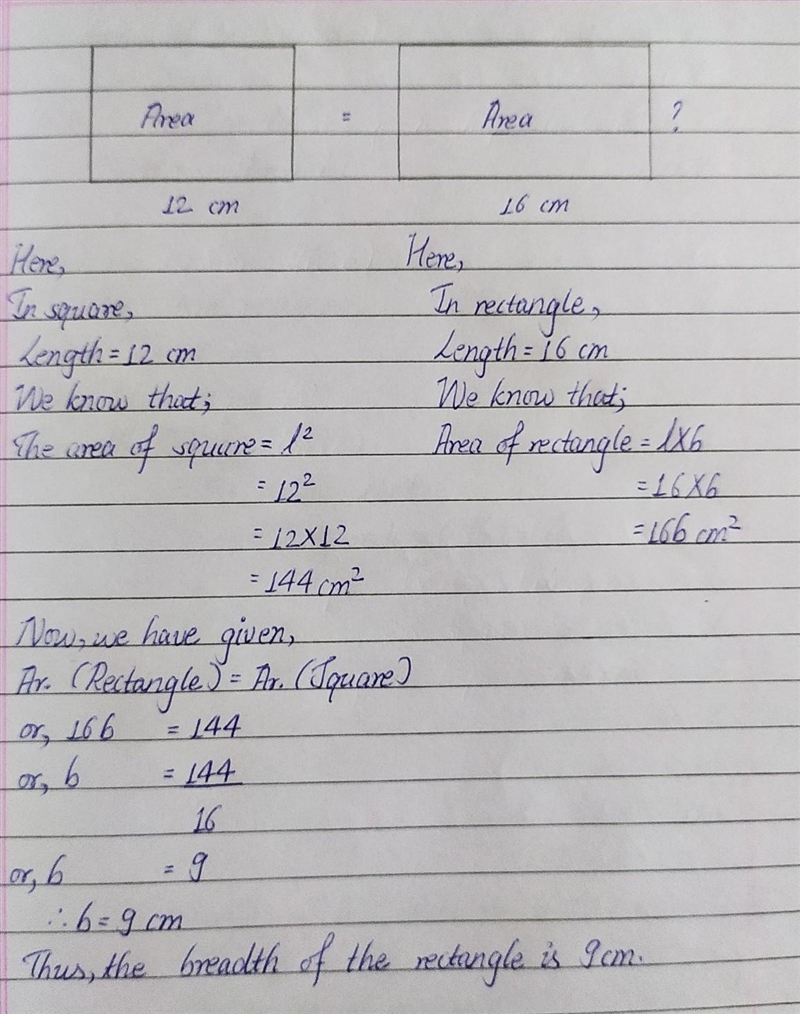 Area = Area ?
12 cm 16 cm
Here,
In square,
Length = 12 cm
We know that;
The area of square = l²
= 12²
= 12×12
= 144 cm²
Here,
In rectangle,
Length = 16 cm
We know that;
Area of rectangle = l×b
= 16×b
= 16b cm²
Now, we have given,
Ar. (Rectangle) = Ar. (Square)
or, 16b = 144
or, b = 144
16
or, b = 9
∴ b = 9 cm
Thus, the breadth of the rectangle is 9 cm.